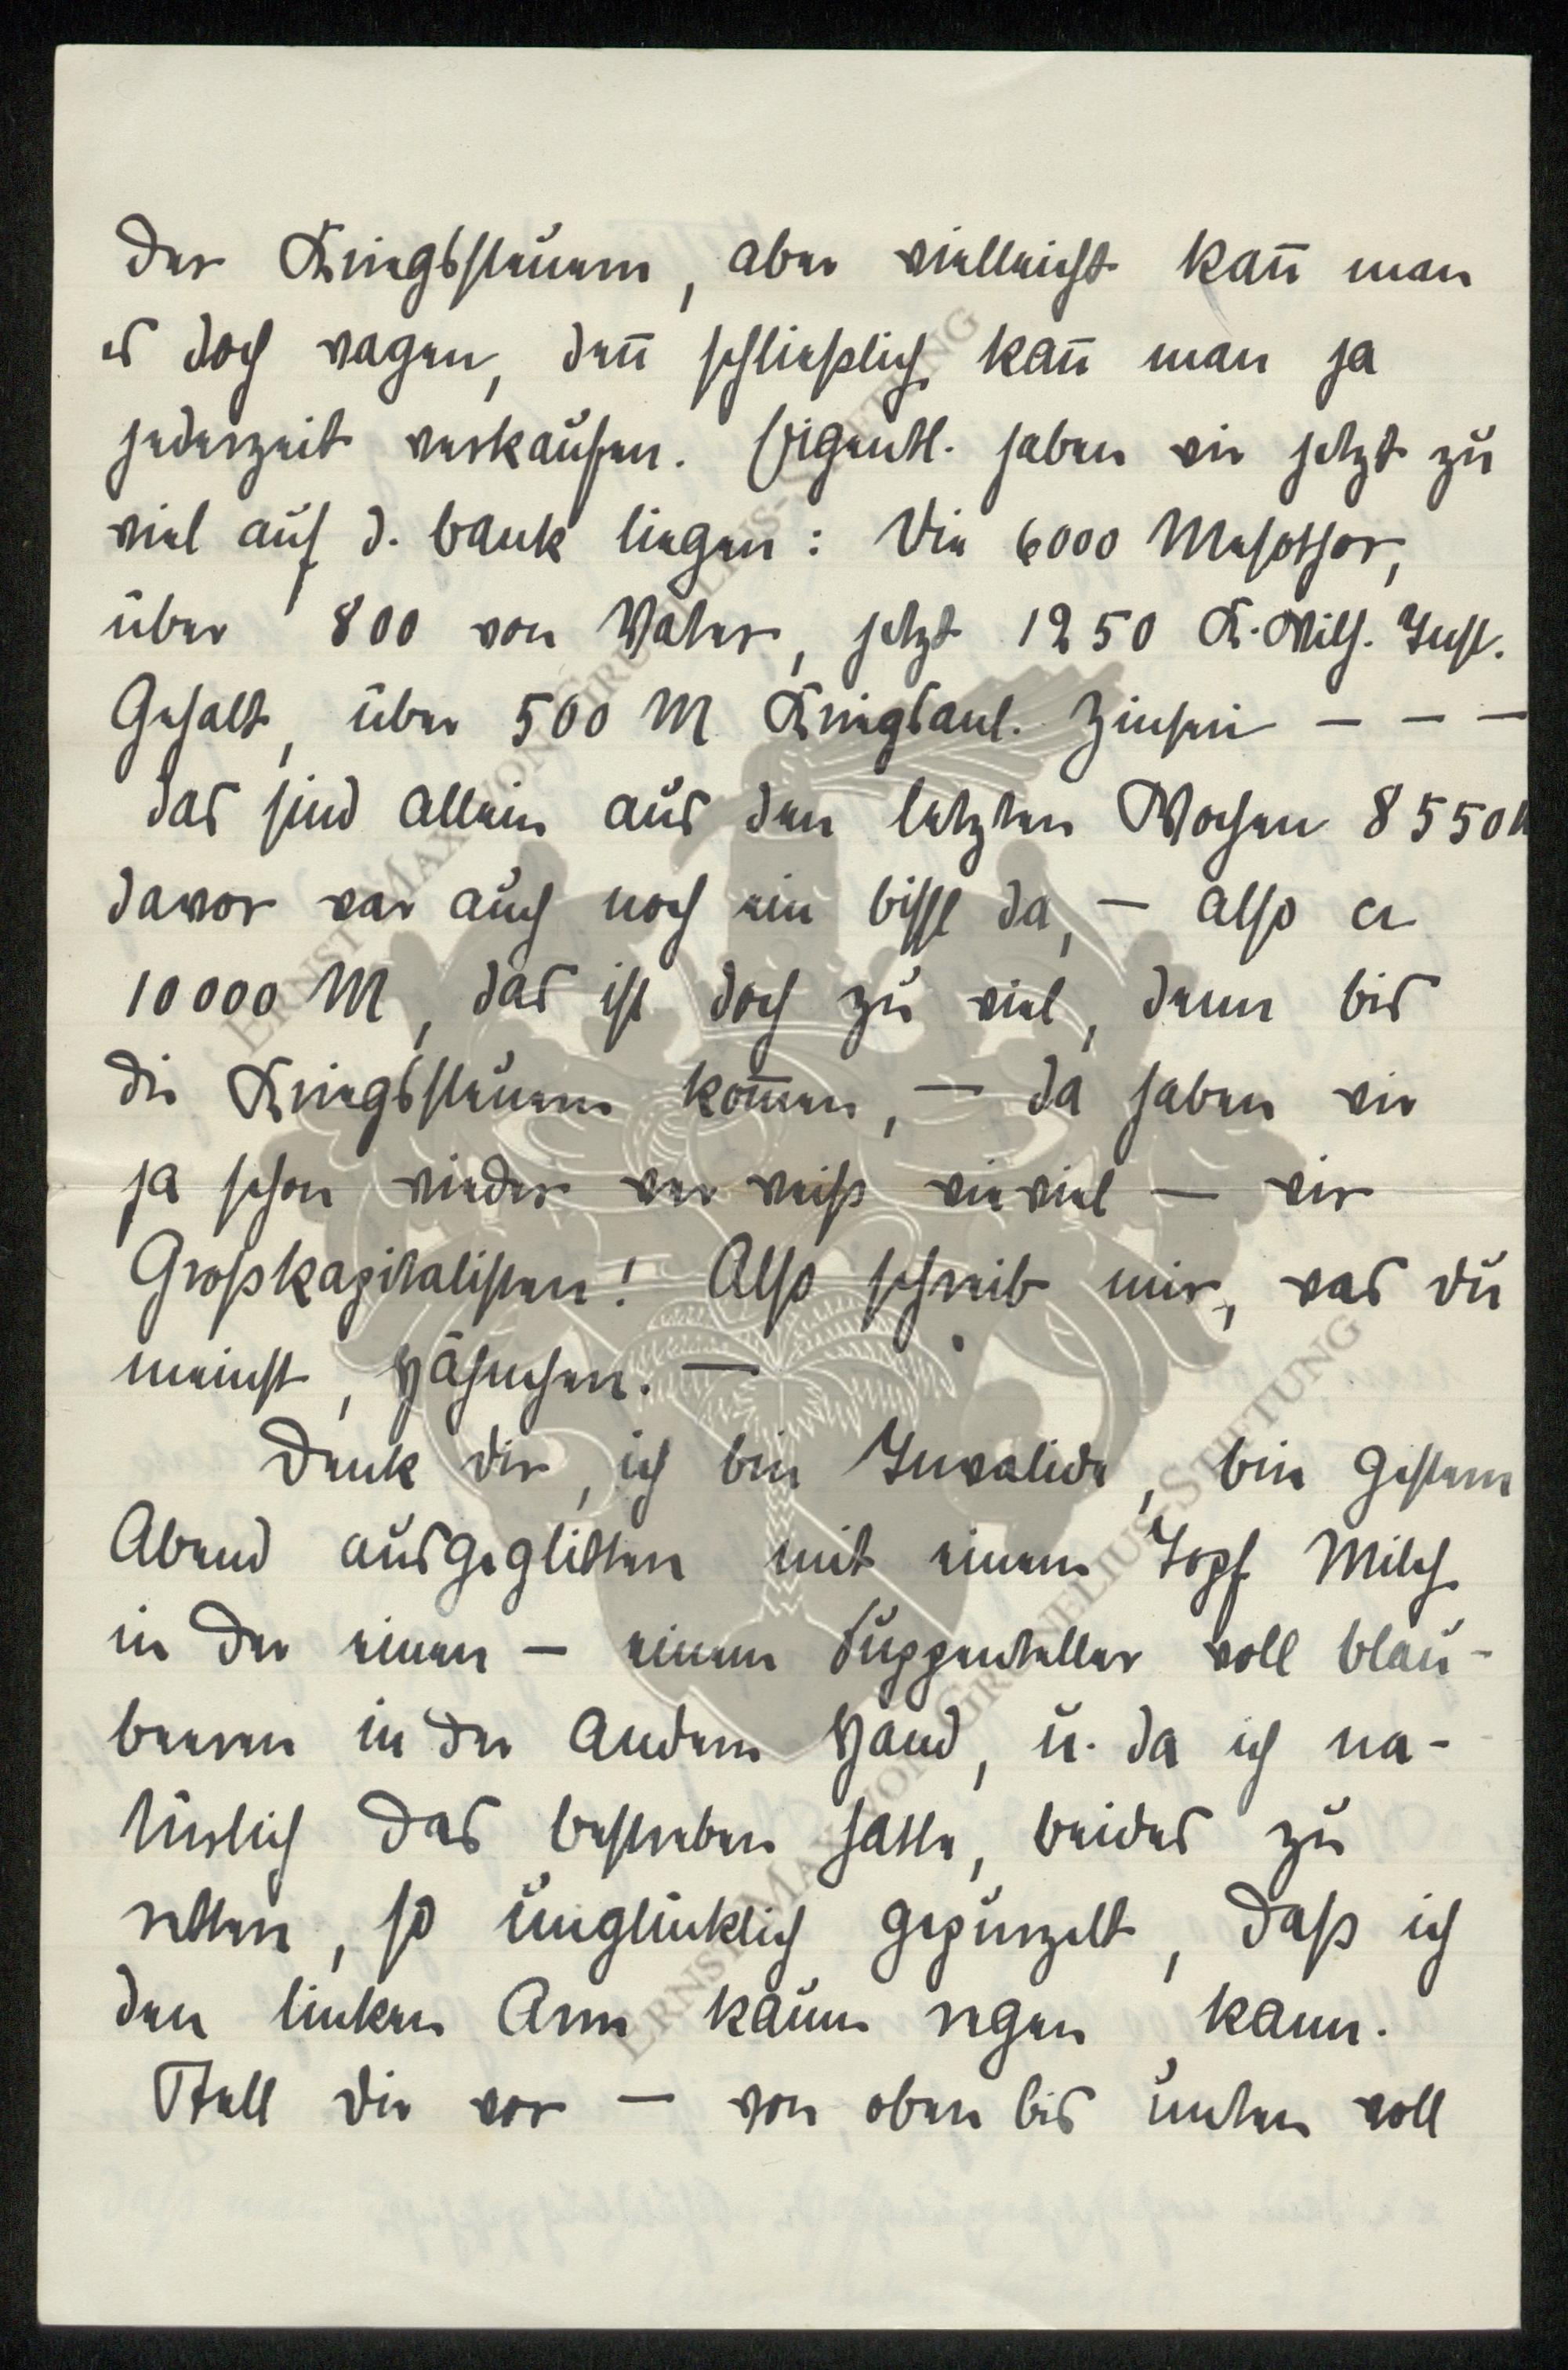 der Kriegssteuern, aber vielleicht kañ man
es doch wagen, deñ schließlich kañ man ja
jederzeit verkaufen. Eigentl. haben wir jetzt zu
viel auf d. bank liegen: Die 6000 Mesothor,
über 800 von Vater, jetzt 1250 K. Wilh. Inst.
Gehalt, über 500 M Kriegsanl. Zinsen – – –
das sind allein aus den letzten Wochen 8550 M
davor war auch noch ein bissl da, – also ca
10000 M, das ist doch zu viel, denn bis
die Kriegssteuern kom̄en, – da haben wir
ja schon wieder wer weiß wieviel – wir
Großkapitalisten! Also schreib mir, was du
meinst, Häschen. –
Denk dir, ich bin Invalide, bin gestern
Abend ausgeglitten mit einem Topf Milch
in der einen – einem Suppenteller voll blau-
beeren in der andern Hand, u. da ich na-
türlich das bestreben hatte, beides zu
retten, so unglücklich gepurzelt, daß ich
den linken Arm kaum regen kann.
Stell dir vor – von oben bis unten voll
ERNST-MAX VON GRUNELIUS-STIFTUNG
ERNST-MAX VON GRUNELIUS-STIFTUNG